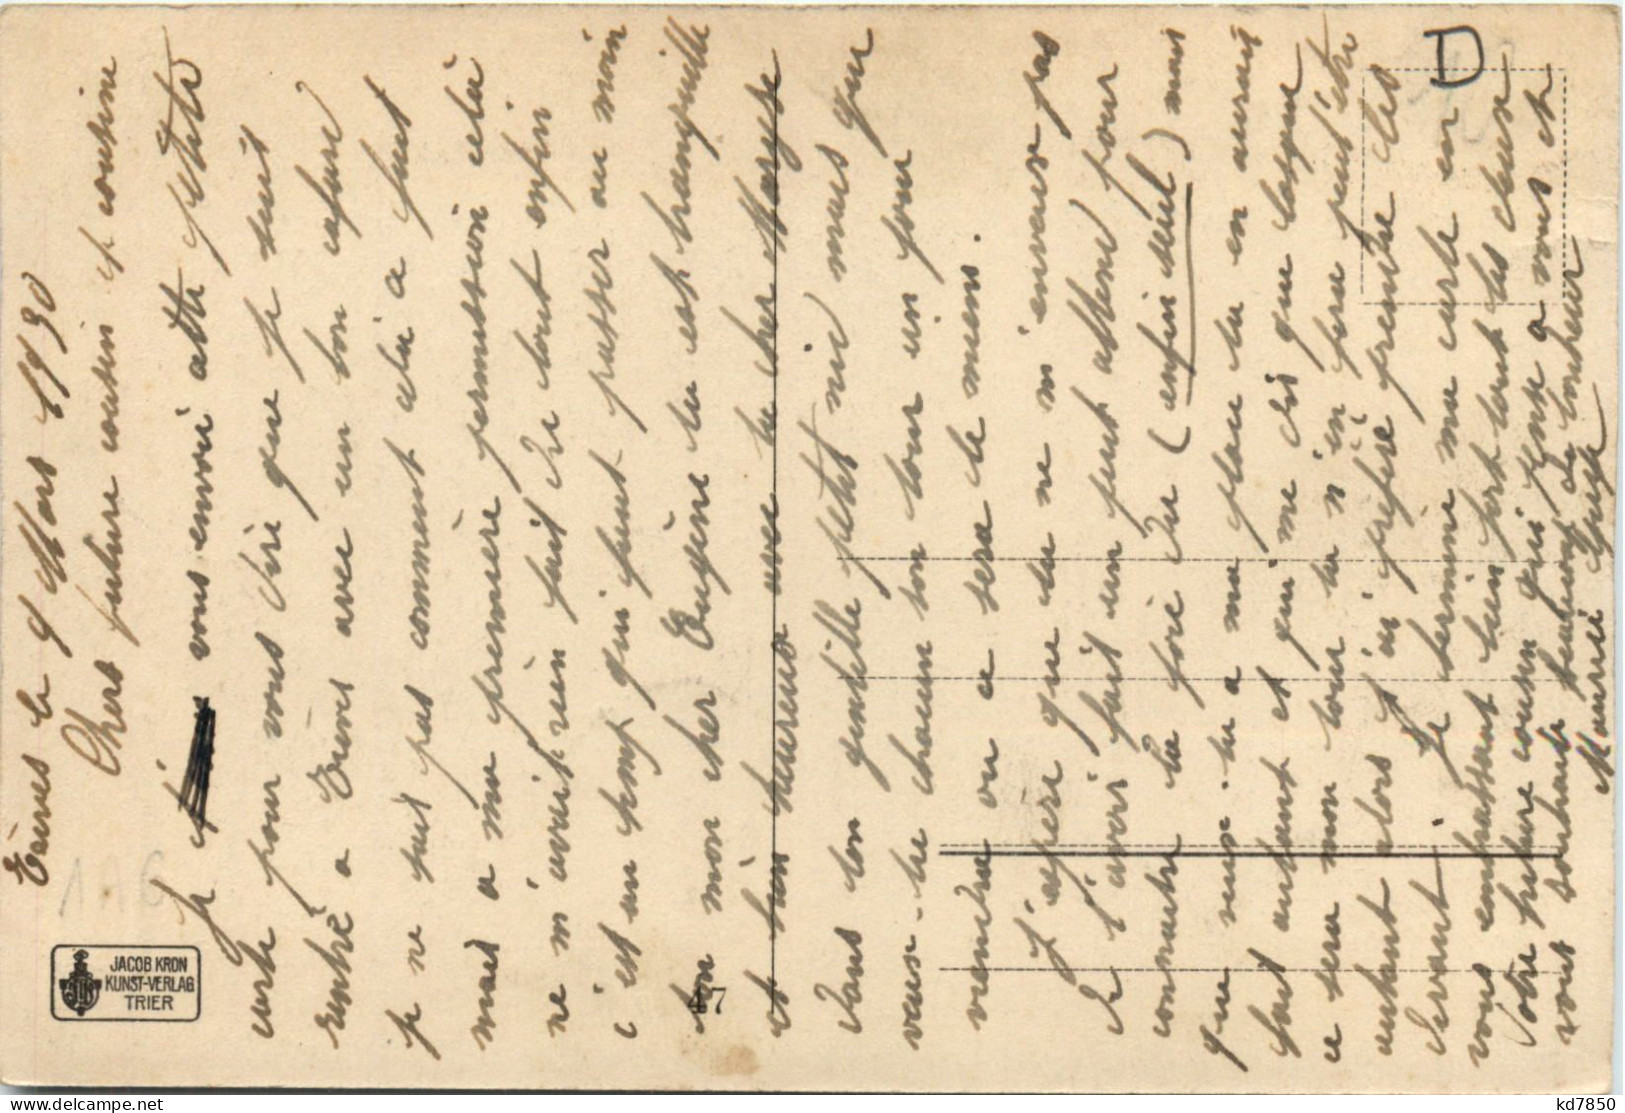 Trèves le 9 Mars 1930
Chers future cousin et cousine
Je vous envoi cette petite
carte pour vous dire que je suit
rentré a Trèves avec un bon cafare
je ne sait pas comment cela a fait
mais a ma première permission cela
ne m'avait rien fait de tout enfin
c'est un temp qui faut passer au moin
ton mon cher Eugène tu est tranquille
et bien heureux avec ta cher Marge
dans ton gentille petit nid mais que
veux-tu chacun ton tour un jour
viendra ou ce sera le miens.
J'espère que tu ne m'enveux pas
de t'avoir fait un peut attend pour
connaitre la joie du (enfin seul) mais
que veux-tu a ma place tu en aurait
fait autant et qui me dit que lorsque
ce sera mon tour tu n'en fera peut être
autant alors j'ai préféré prendre les
devant. Je termine ma carte en
vous embrassant bien fort tout les deux
Votre future cousin qui pense a vous et
vous souhaite beaucoup de bonheur
Maurice
D
116
JACOB KRON
KUNST-VERLAG
TRIER
47
kd7850